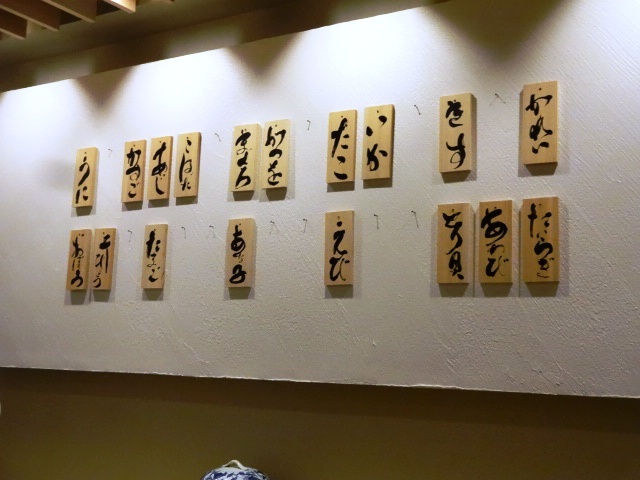 かれい
きす
いか
たこ
かつを
まぐろ
こはだ
あじ
かすご
うに
たいらぎ
あわび
とり貝
えび
あな子
たまご
おぼろ